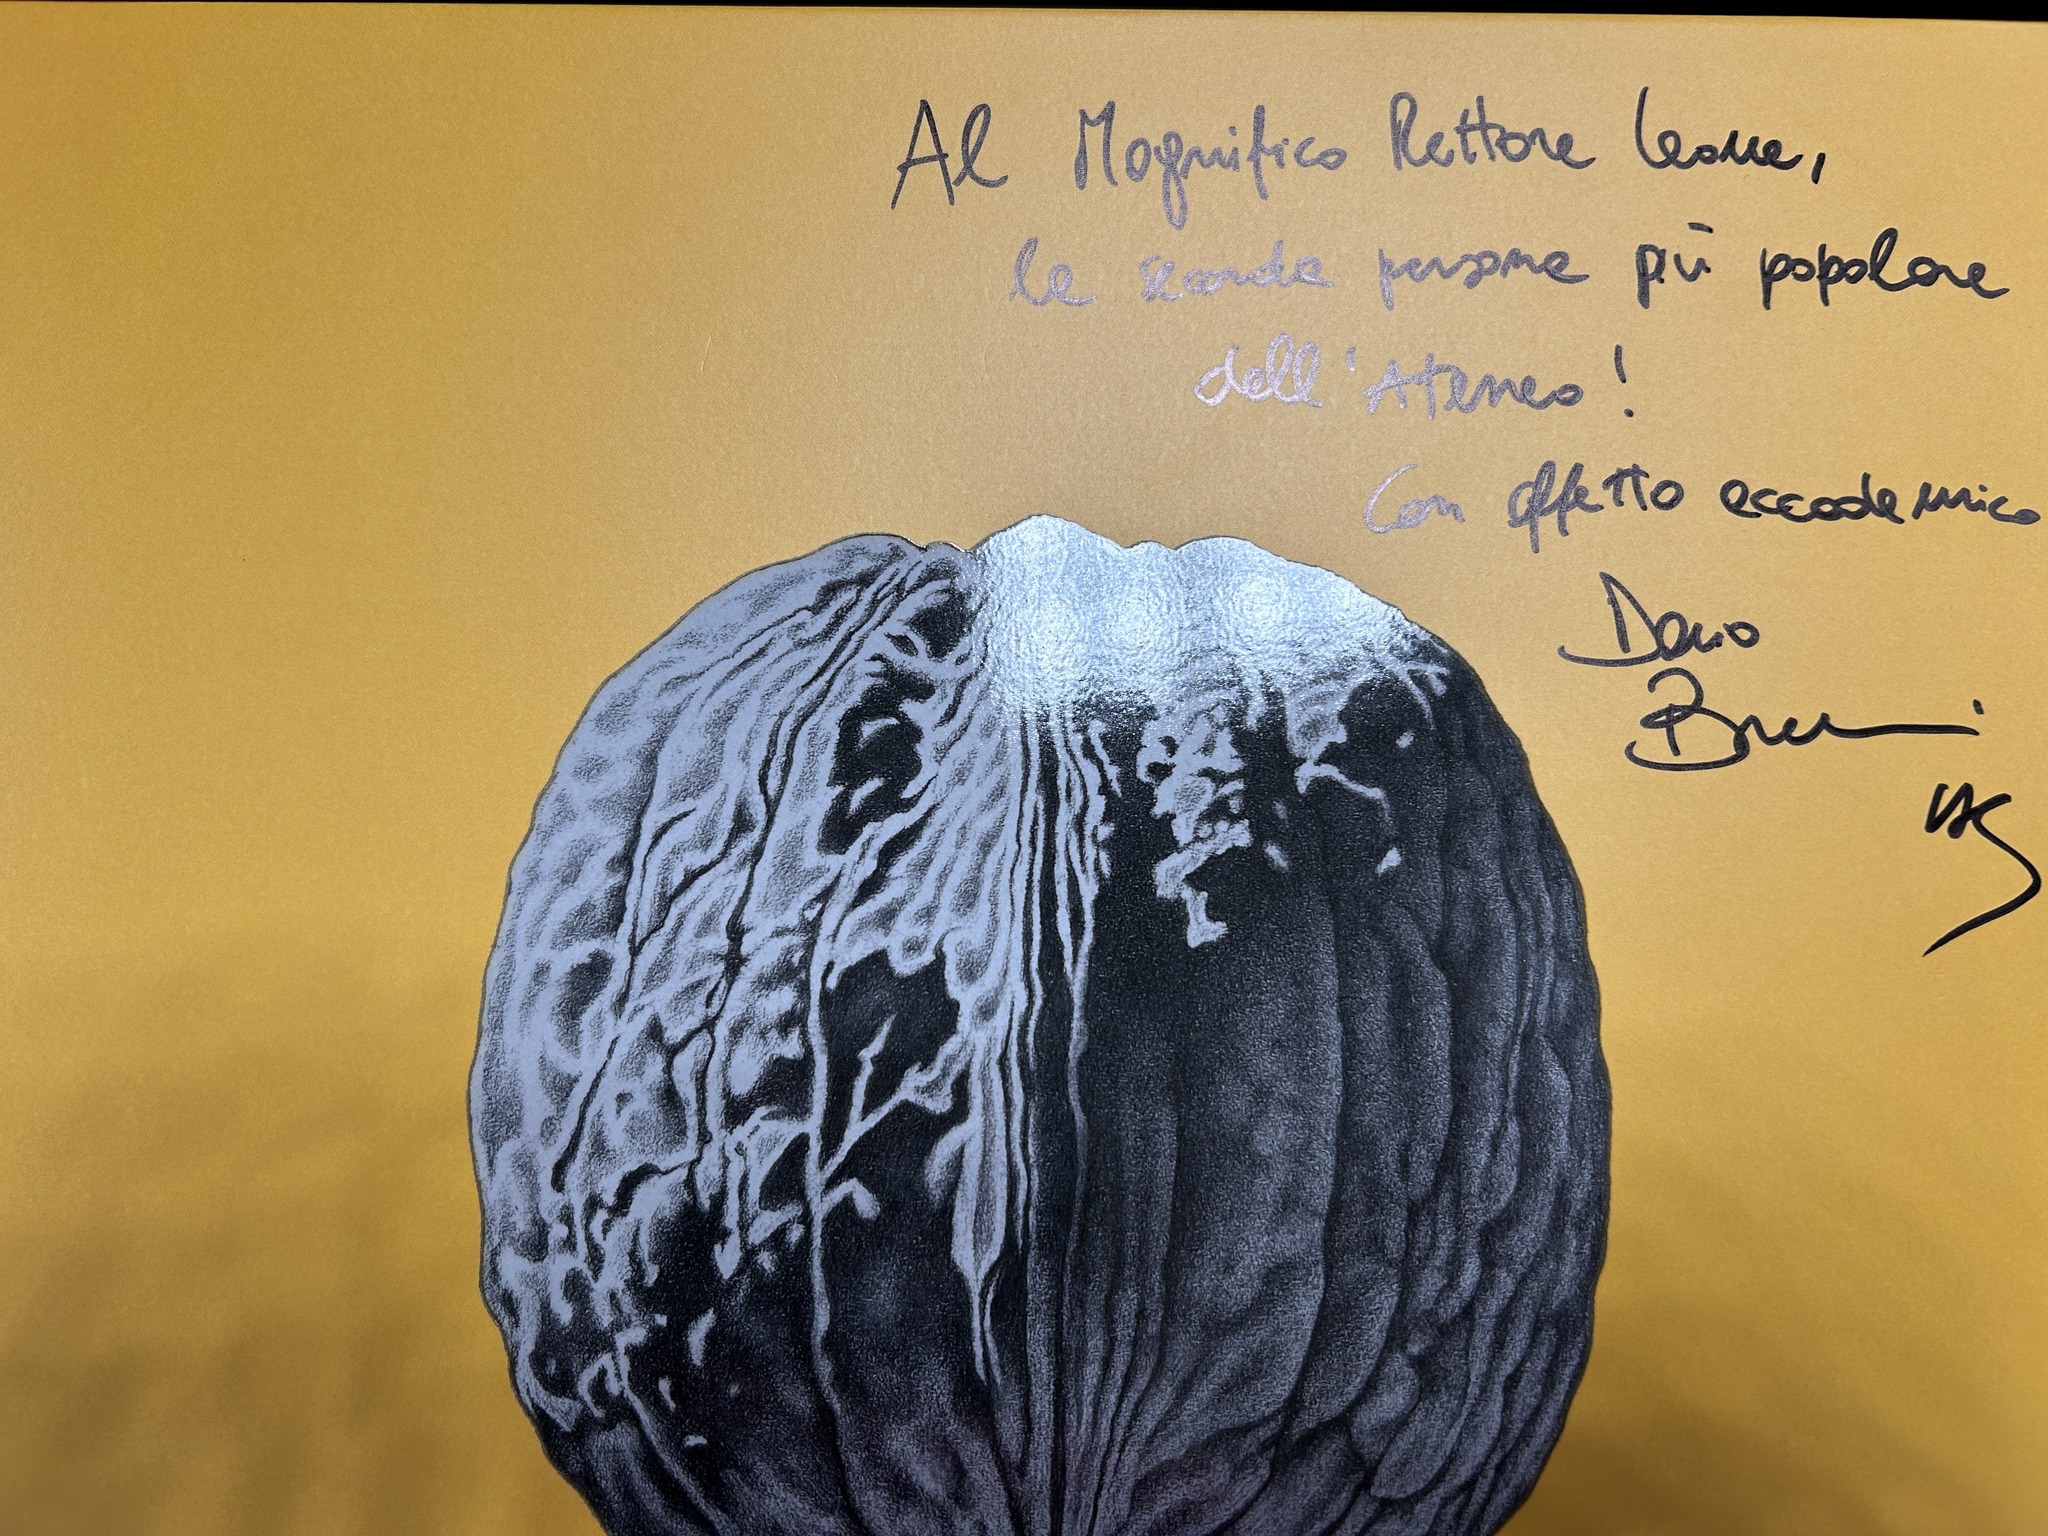 Al Magnifico Rettore Leone,
la seconda persona più popolare
dell'Ateneo!
Con affetto accademico
Dario